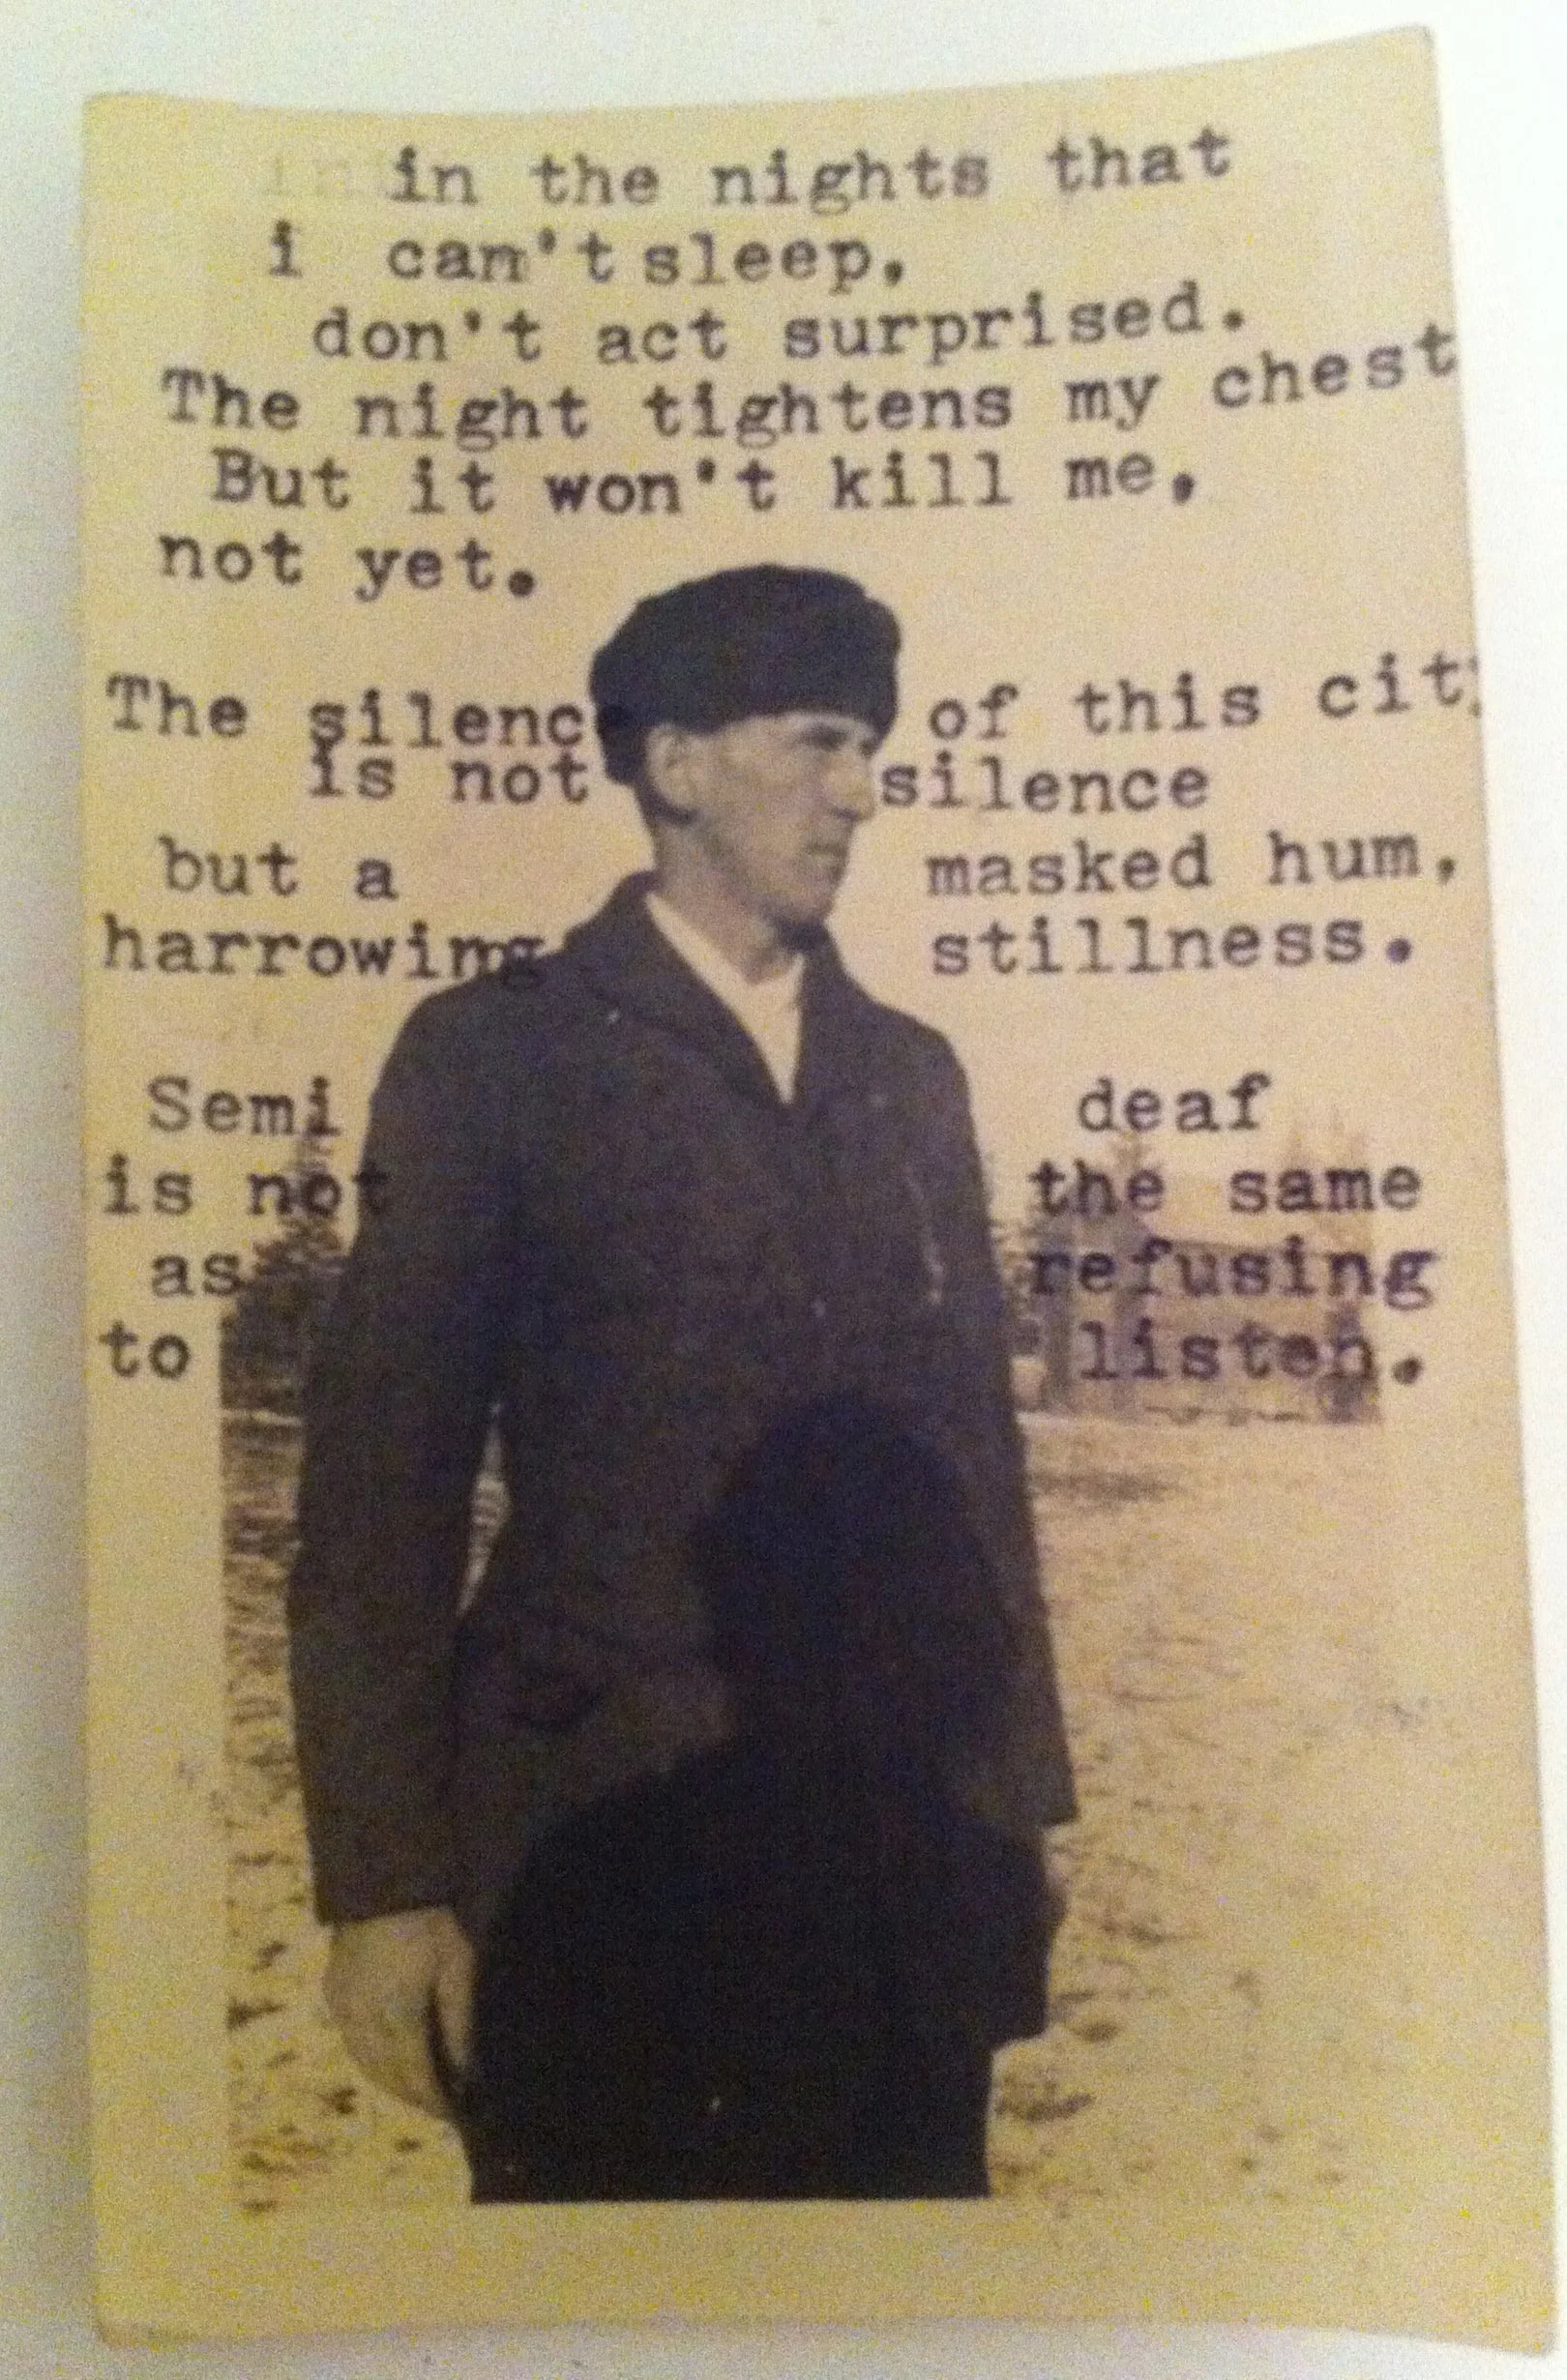 in the nights that
i can't sleep,
don't act surprised.
The night tightens my chest
But it won't kill me,
not yet.
The silenc of this city
is not silence
but a masked hum,
harrowing stillness.
Semi deaf
is not the same
as refusing
to listen.